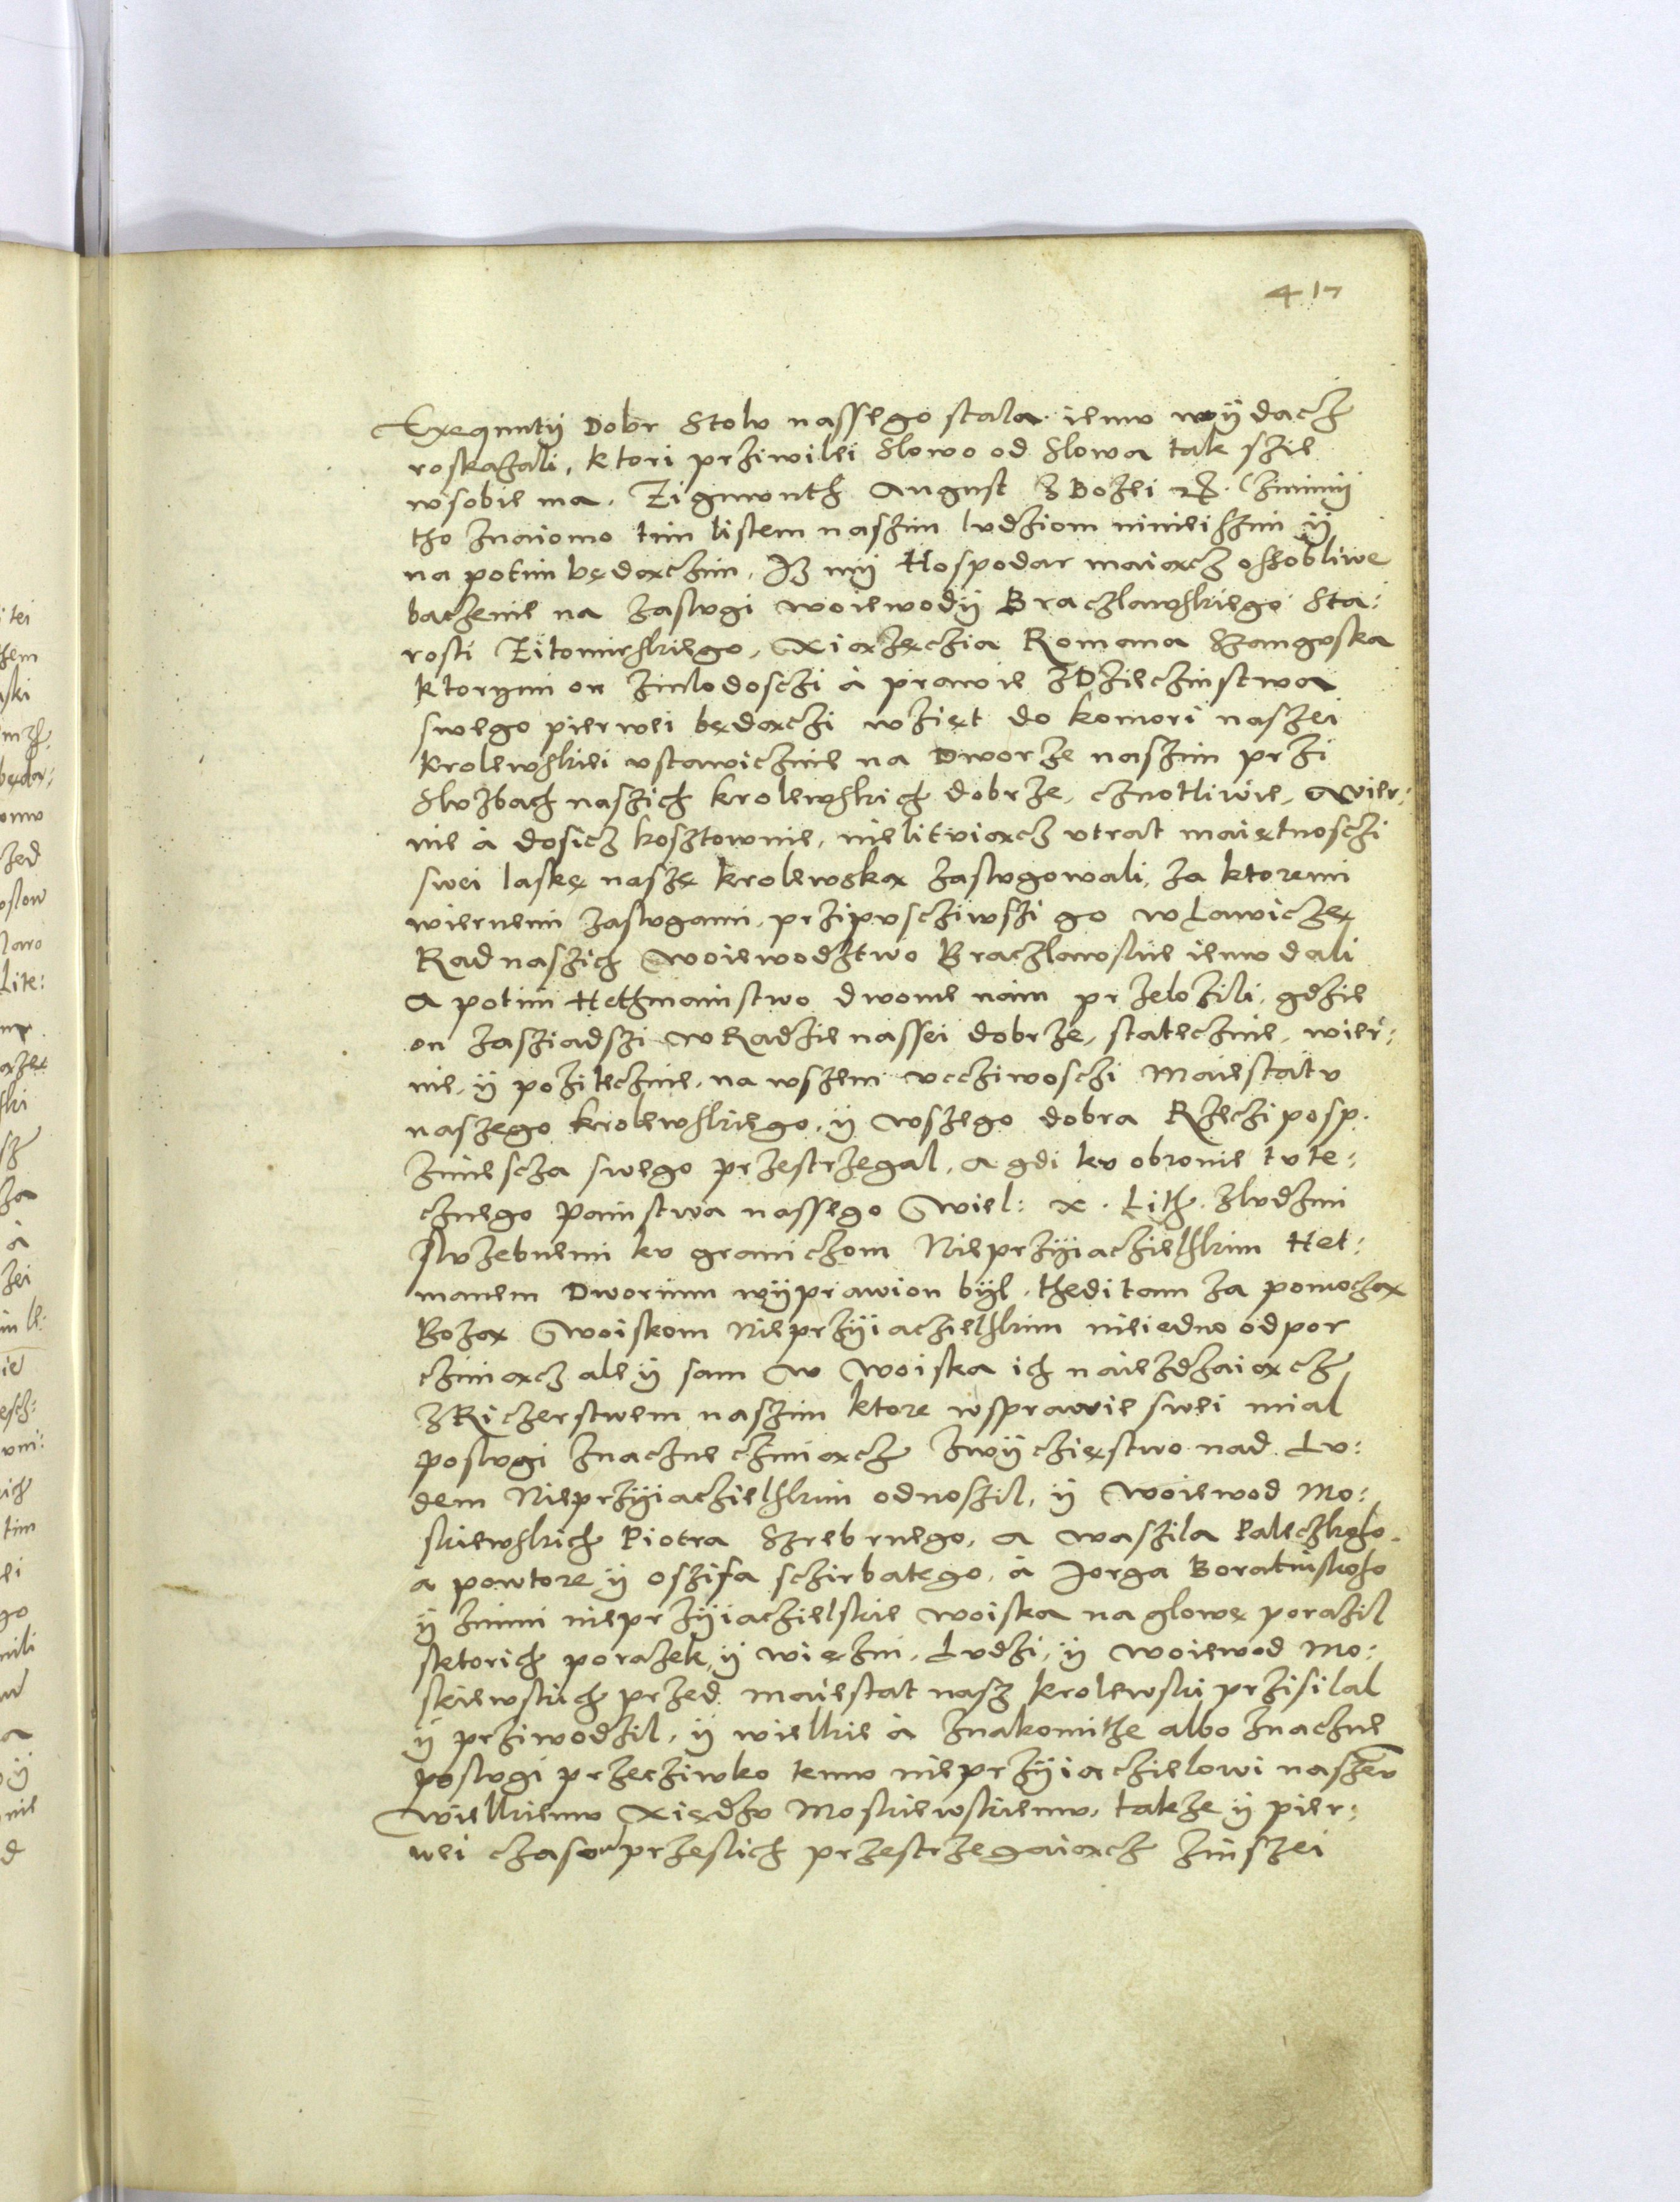 417
Exequutij Dobr Stolu nassego stala. iemu wÿdacz
roskazali, ktori prziwilei slowo od slowa tak szie
wsobie ma. Zigmunth August Z Bozei etc. Czinimÿ
tho znaiomo tim listem naszim ludziom ninieiszim ÿ
na potim będączim, Iz mÿ Hospodar maiącz oszobliwe
baczenie na zaslugi woiewodÿ Braczlawskiego Sta:
rosti Zitomirskiego, Xiążęczia Romana Szanguska
ktorymi on zmlodosczi à prawie zDzieczinstwa
swego pierwei będączi wzięt do komori naszei
krolewskiei ustawicznie na Dworze naszim przi
Sluzbach naszich krolewskich dobrze, cznotliwie, wier:
nie à dosicz kosztownie, nielituiącz utrat maiętnosczi
swei laskę naszę krolewską zaslugowali, za ktoremi
wiernemi zaslugami, przipuscziwszi go w Lawiczę
Rad naszich Woiewodztwo Braczlawskie iemu dali
A potim Hethmainstwo dworne nàm przelozili, gdzie
on zasziadszi w Radzie nassei dobrze, statecznie, wier:
nie, ÿ pozitecznie, na wszem uccziwosczi Maiestatu
naszego krolewskiego, ÿ wszego dobra Rzeczi posp.
zmiescza swego przestrzegal, a gdi ku obronie tute:
cznego painstwa nassego Wiel: X. Lith. zludzmi
sluzebnemi ku graniczom Nieprzÿiaczielskim Het:
manem Dwornim wÿprawion bÿl, thedi tam za pomoczą
Bozą Woiskom Nieprzÿiaczielskim nieiedno odpor
cziniącz ale ÿ sam w Woiska ich naiezdzaiącz
z Riczerstwem naszim ktore wsprawie swei mial
poslugi znaczne cziniącz zwÿczięstwo nad Lu:
dem Nieprzÿiaczielskim odnoszil, ÿ Woiewod Mo:
skiewskich Piotra Szrebrnego, a Waszila Paleczkoho.
a powtore ÿ Oszifa sczirbatego, à Jorga Boratinskoho
ÿ zinmi nieprzÿiaczielskie woiska na glowę poraził
sktorich porazek, ÿ więzni, Ludzi, ÿ woiewod Mo:
skiewskich przed maiestat nasz krolewski przisilal
ÿ prziwodzil, ÿ wielkie à znakomithe albo znaczne
poslugi przecziwko temu nieprzÿiaczielowi naszeu
Wielkiemu Xiędzu Moskiewskiemu, takze ÿ pier:
wei czasow przeslich przestrzegaiącz zinszei